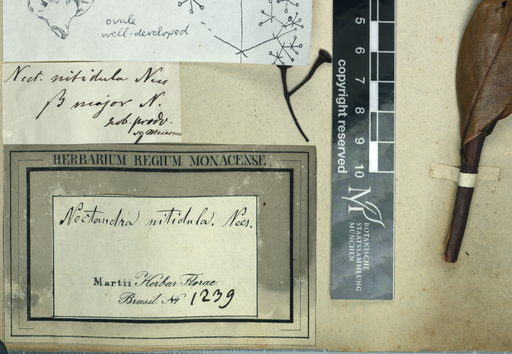 ovule
well-developed
Nect. nitidula Nees
β major N.
nob. prodr.
HERBARIUM REGIUM MONACENSE.
Nectandra nitidula. Nees.
Martii Herbar. Florae
Brasil. No 1239
5
6
7
8
9
10
copyright reserved
BOTANISCHE
STAATSSAMMLUNG
MÜNCHEN